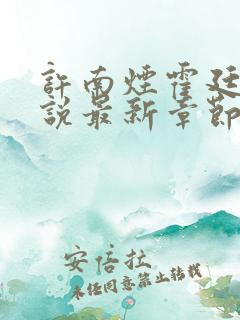 許南煙霍廷
說最新章節
安倍拉
未任同意禁止转载